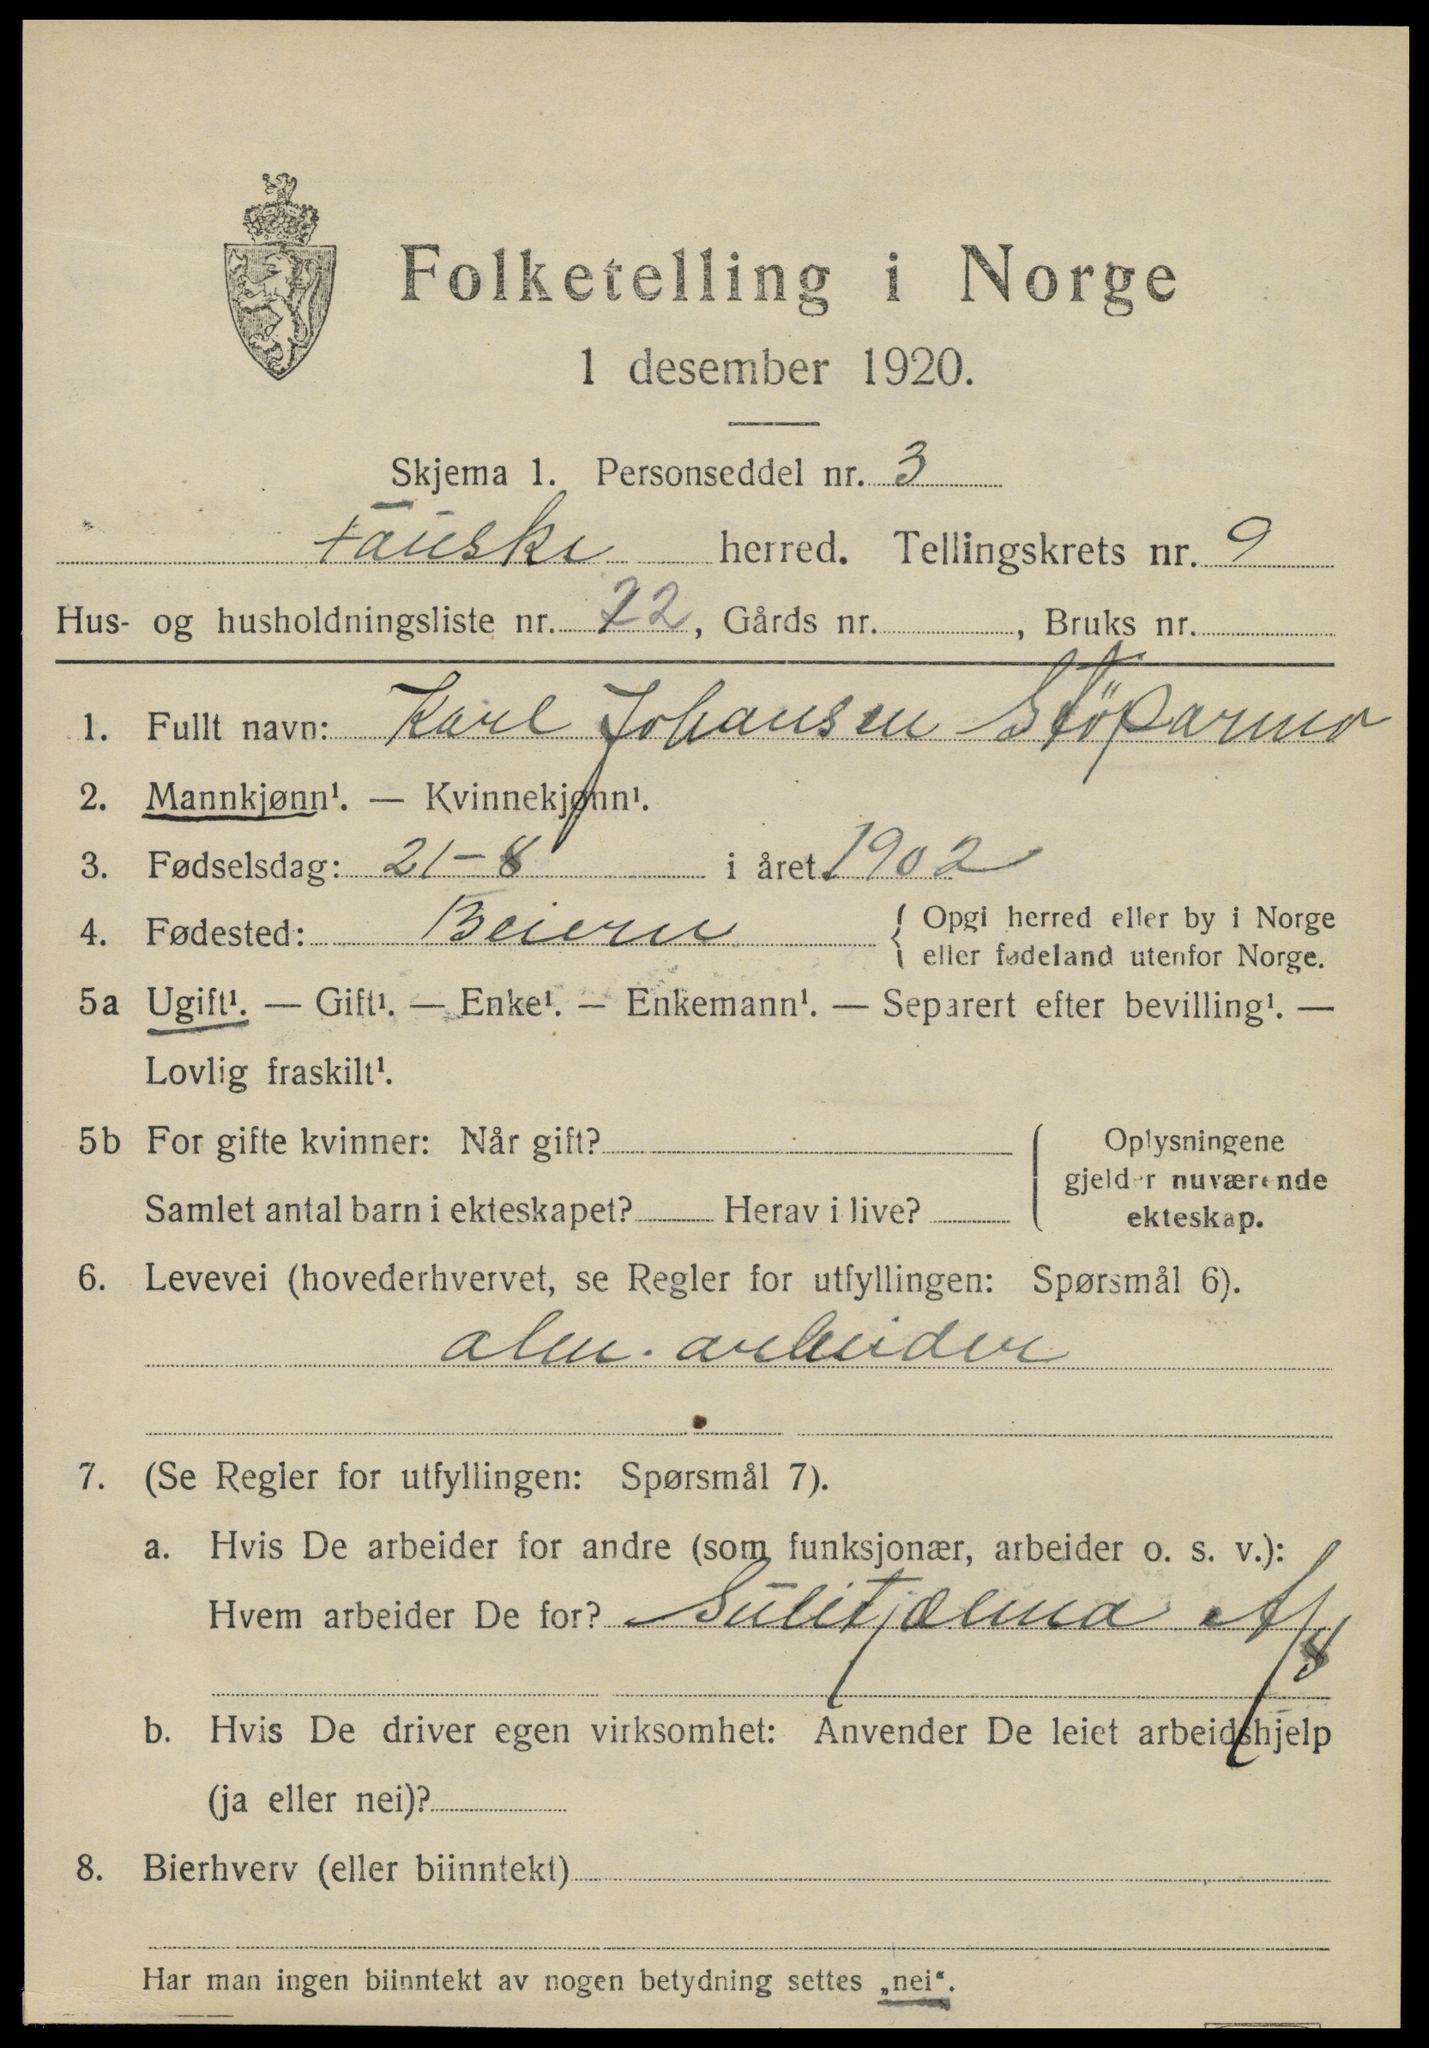 Folketelling i Norge
1 desember 1920.
Skjema 1. Personseddel nr. 3
Fauske herred. Tellingskrets nr. 9
Hus- og husholdningsliste nr. 72, Gårds nr. , Bruks nr.
1. Fullt navn: Karl Johansen
2. Mannkjønn¹. — Kvinnekjønn¹.
3. Fødselsdag: 21-8 i året 1902
4. Fødested: Beiern { Opgi herred eller by i Norge
eller fødeland utenfor Norge.
5a Ugift¹. — Gift¹. — Enke¹. — Enkemann¹. — Separert efter bevilling¹. —
Lovlig fraskilt¹.
5b For gifte kvinner: Når gift? Oplysningene
gjelder nuværende
Samlet antal barn i ekteskapet? Herav i live? ekteskap.
6. Levevei (hovederhvervet, se Regler for utfyllingen: Spørsmål 6).
alm. arbeider
7. (Se Regler for utfyllingen: Spørsmål 7).
a. Hvis De arbeider for andre (som funksjonær, arbeider o. s. v.):
Hvem arbeider De for? Sulitjælma A/S
b. Hvis De driver egen virksomhet: Anvender De leiet arbeidshjelp
(ja eller nei)?
8. Bierhverv (eller biinntekt)
Har man ingen biinntekt av nogen betydning settes „nei“.